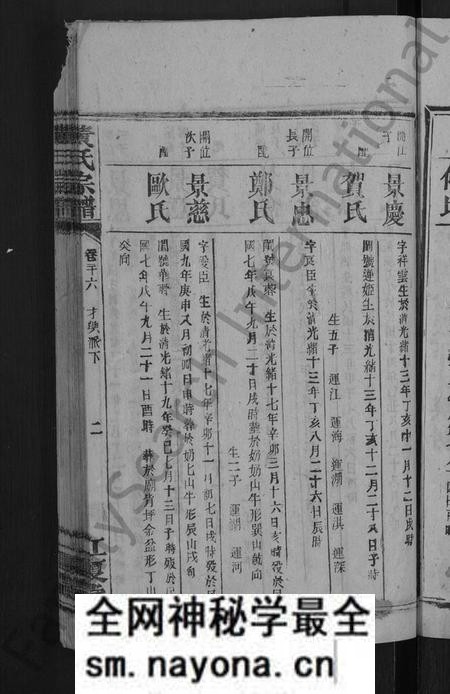 景慶
字祥雲生於清光緒十三年丁亥十一月十二日辰時
賀氏
閨號蓮姬生於清光緒十三年丁亥十二月二十八日子時
生五子 運江 運海 運湖 運淇 運深
開位長子
景忠
字良臣
清光緒十三年丁亥八月二十六日辰時
配
鄭氏
生於清光緒十七年辛卯三月十六日亥時歿於民
國七年戊午九月二十日戌時葬於奶奶山牛形巽山乾向
生二子 運湖 運河
開位次子
景慈
生於清光緒十七年辛卯十一月初七日戌時歿於民
國九年庚申八月初四日申時葬於奶奶山牛形辰山戌向
配
歐氏
生於清光緒十九年癸巳七月十三日子時歿於民
國七年戊午九月二十一日酉時 葬於廟背坪金盆形丁山
癸向
黃氏宗譜
卷二十六 才興派下
二
江夏
FamilySearch International
全网神秘学最全
sm.nayona.cn